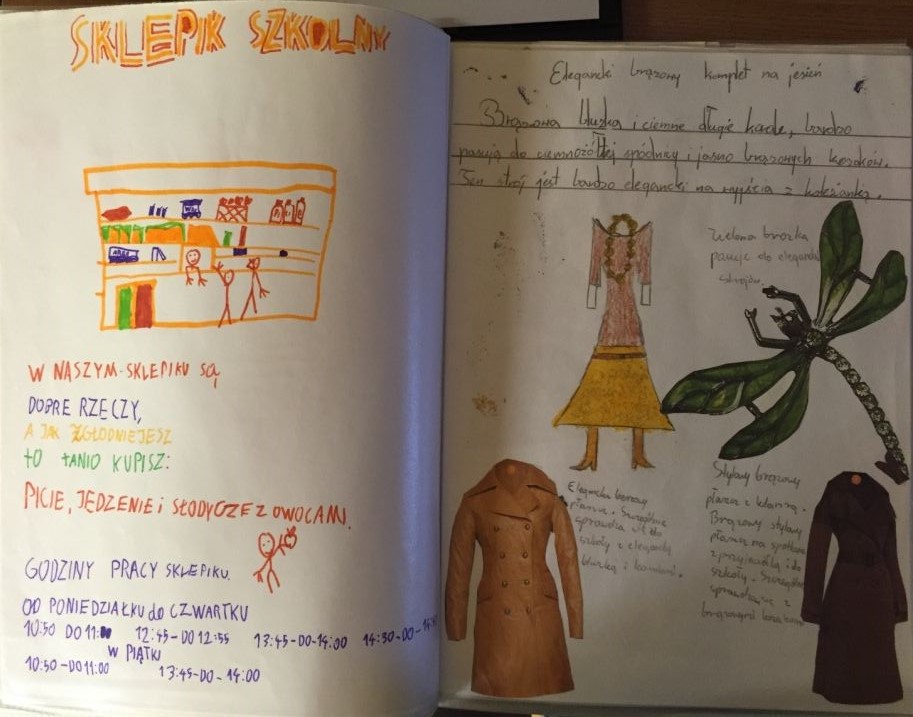 SKLEPIK SZKOLNY
W NASZYM SKLEPIKU SĄ
DOBRE RZECZY,
A JAK ZGŁODNIEJESZ
TO TANIO KUPISZ:
PICIE, JEDZENIE i SŁODYCZE Z OWOCAMI.
GODZINY PRACY SKLEPIKU.
OD PONIEDZIAŁKU do CZWARTKU
10:50 DO 11: 12:45-DO 12:55 13:45-DO-14:00 14:50-DO-
W PIĄTKI
10:50-DO 11:00 13:45-DO-14:00
Elegancki brązowy komplet na jesień
Brązowa bluzka i ciemne długie korale, bardzo
pasują do ciemnożółtej spódnicy i jasno brązowych kozaków.
Ten strój jest bardzo elegancki na wyjścia z koleżanką.
Zielona broszka
pasuje do
strojów.
Elegancki beżowy
płaszcz. Szczególnie
sprawdza się do
szkoły z elegancką
bluzką i
Stylowy brązowy
płaszcz z klamrą.
Brązowy stylowy
płaszcz na spotkania
z przyjaciółką i do
szkoły. Szczególnie
z
brązowymi kozakami